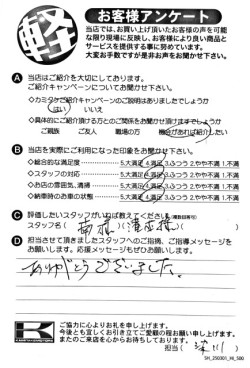 軽
お客様アンケート
当店では、お買い上げ頂いたお客様の声を可能
な限り現場に反映し、お客様により良い商品と
サービスを提供する事に努めています。
大変お手数ですが是非お声をお聞かせ下さい。
A 当店はご紹介を大切にしております。
ご紹介キャンペーンについてお聞かせ下さい。
◇カミタケご紹介キャンペーンのご説明はありましたでしょうか
はい いいえ
◇具体的にご紹介頂ける方とのご関係をお聞かせ頂けますでしょうか
ご親族 ご友人 職場の方 機会があれば紹介したい
B 当店を実際にご利用になった印象をお聞かせ下さい。
◇総合的な満足度 5.大満足 4.満足 3.ふつう 2.やや不満 1.不満
◇スタッフの対応 5.大満足 4.満足 3.ふつう 2.やや不満 1.不満
◇お店の雰囲気、清掃 5.大満足 4.満足 3.ふつう 2.やや不満 1.不満
◇納車時のお車の状態 5.大満足 4.満足 3.ふつう 2.やや不満 1.不満
C 評価したいスタッフがいれば教えてください。(複数回答可)
スタッフ名( )
D 担当させて頂きましたスタッフへのご指摘、ご指導メッセージを
お願いします。応援メッセージもぜひお願いします。
ありがとうございました。
K
ご協力に心よりお礼を申し上げます。
今後とも宜しくお引き立てご愛顧の程お願い申し上げます。
またのご来店を心からお待ちしております。
担当( 深川 )
SH_250301_HI_500